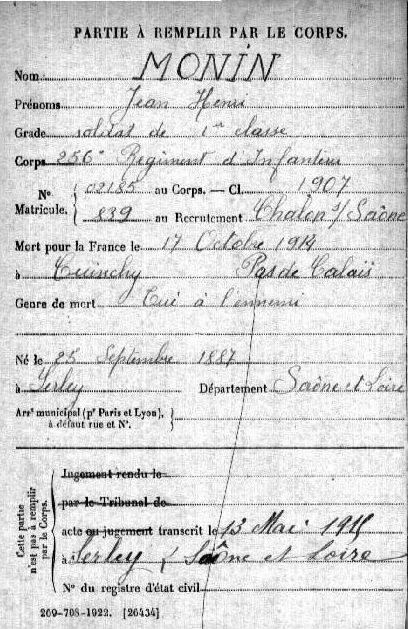 PARTIE À REMPLIR PAR LE CORPS.
Nom MONIN
Prénoms Jean Henri
Grade soldat de 1re classe
Corps 256e Régiment d'Infanterie
No Matricule. { 02185 au Corps. — Cl. 1907
839 au Recrutement Chalon s/ Saône
Mort pour la France le 17 Octobre 1914
à Cuinchy Pas de Calais
Genre de mort Tué à l'ennemi
Né le 25 Septembre 1887
à Serley Département Saône et Loire
Arrt municipal (pr Paris et Lyon), à défaut rue et No. }
Cette partie n'est pas à remplir par le Corps.
Jugement rendu le
par le Tribunal de
acte ou jugement transcrit le 13 Mai 1915
à Serley Saône et Loire
No du registre d'état civil
269-708-1922. [26434]